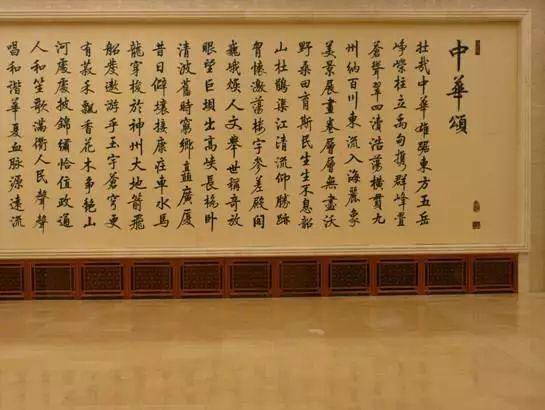 中華頌
壯哉中華雄踞東方五岳
崢嶸柱立禹甸攜群峰疊
蒼聳翠四瀆浩蕩橫貫九
州納百川東流入海麗象
美景展畫卷層層無盡沃
野桑田育斯民生生不息韶
山杜鵑渠江清流仰勝跡
胷懷激蕩樓宇參差殿閣
巍峨煥人文舉世稱奇放
眼望巨壩出高峽長橋卧
清波舊時窮鄉矗廣厦
昔日僻壤接康莊車水馬
龍穿梭於神州大地箭飛
船發遨游乎玉宇蒼穹更
有菽禾飄香花木争艳山
河處處披錦繡恰值政通
人和笙歌滿衢人民聲聲
唱和諧華夏血脉源遠流